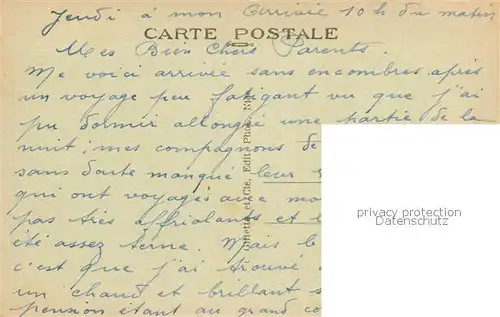 Jeudi à mon arrivée 10 h du matin
CARTE POSTALE
Mes Bien Chers Parents.
Me voici arrivée sans encombres après
un voyage peu fatigant vu que j'ai
pu dormir allongée une partie de la
nuit; mes compagnons de
sans doute manqué leur
qui ont voyagés avec mo
pas très affriolants et
été assez terne. Mais le
c'est que j'ai trouvé
un chaud et brillant s
pension étant au grand co
Gilletta et Cie, Edit. Phot., Nice
privacy protection
www.oldthing.de